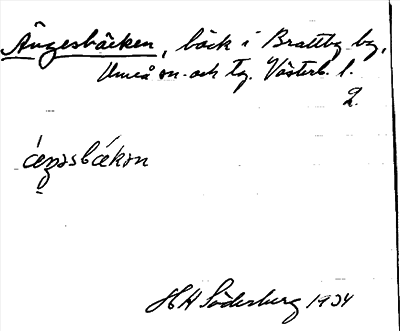 Ängesbäcken, bäck i Brattby by,
Umeå sn. och tg. Västerb. l.
2.
áŋəsbákən
H H Söderberg 1934